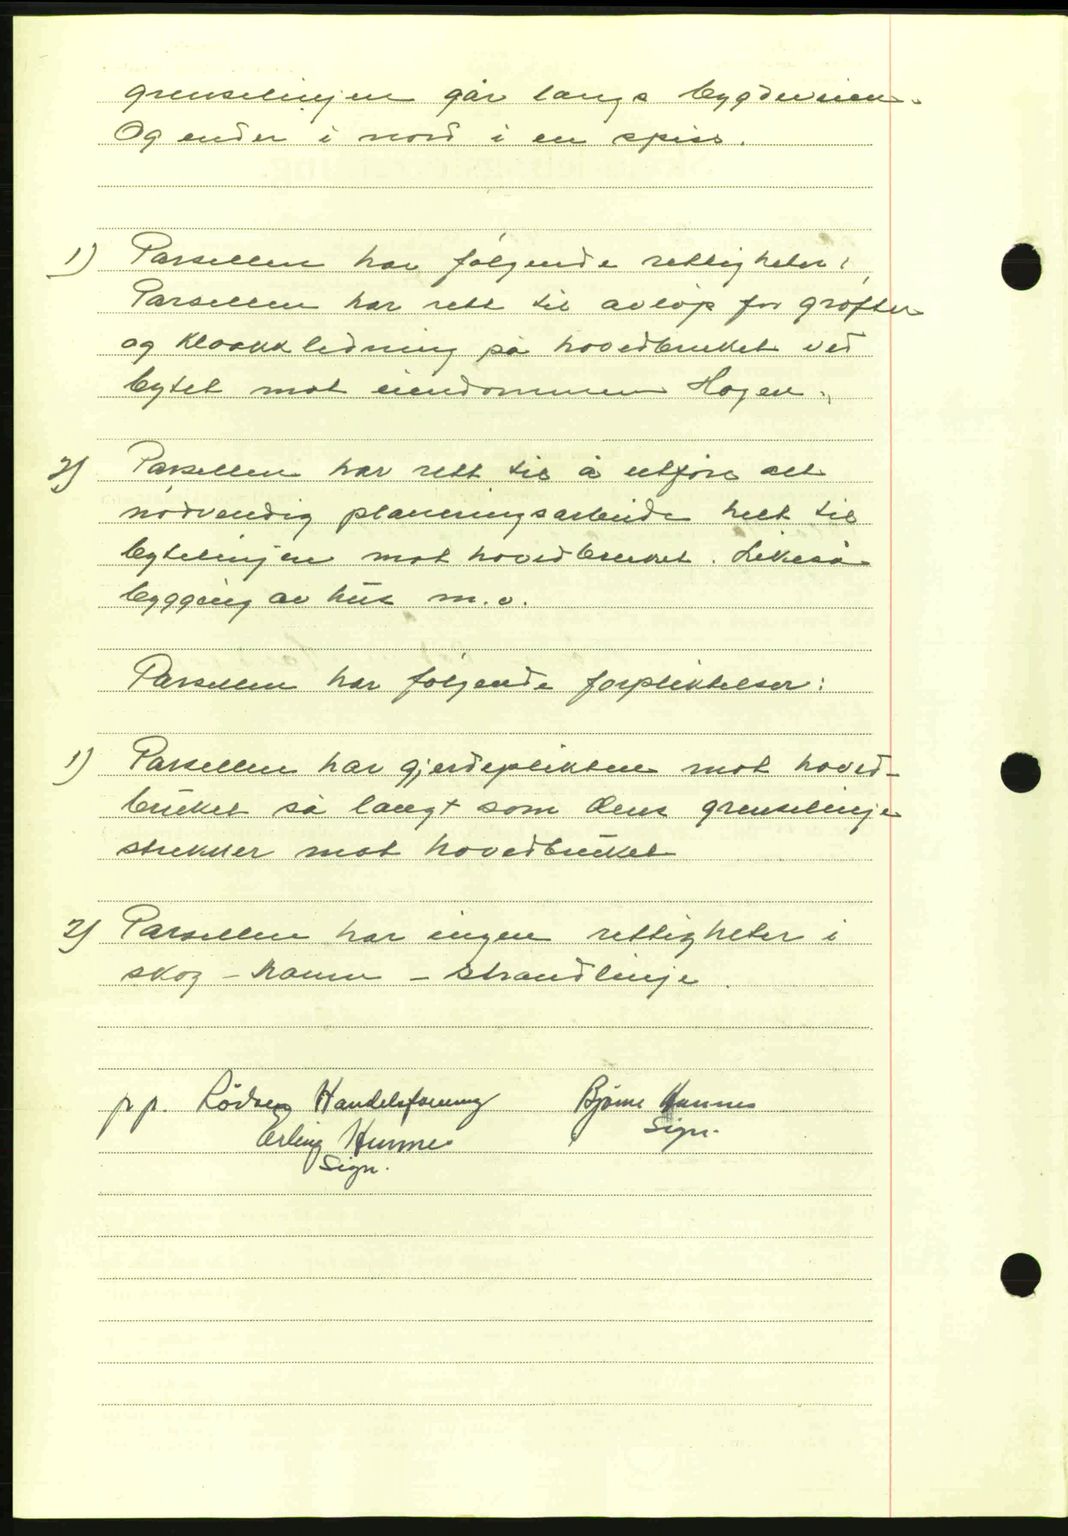 grenselinjen går langs bygdeveien.
Og ender i nord i en spiss.
1) Parsellen har følgende rettigheter:
Parsellen har rett til avløp for grøfter
og kloakkledning på hovedbruket ved
bytet mot eiendommen Hagen.
2) Parsellen har rett til å utføre alt
nødvendig planeringsarbeide helt til
bytelinjen mot hovedbruket. Likeså
bygging av hus m.v.
Parsellen har følgende forpliktelser:
1) Parsellen har gjerdeplikten mot hoved-
bruket så langt som dens grenselinje
strekker mot hovedbruket
2) Parsellen har ingen rettigheter i
skog - havn - strandlinje.
p.p. Rödven Handelsforening Bjarne Hunnes
Erling Hunnes sign.
sign.